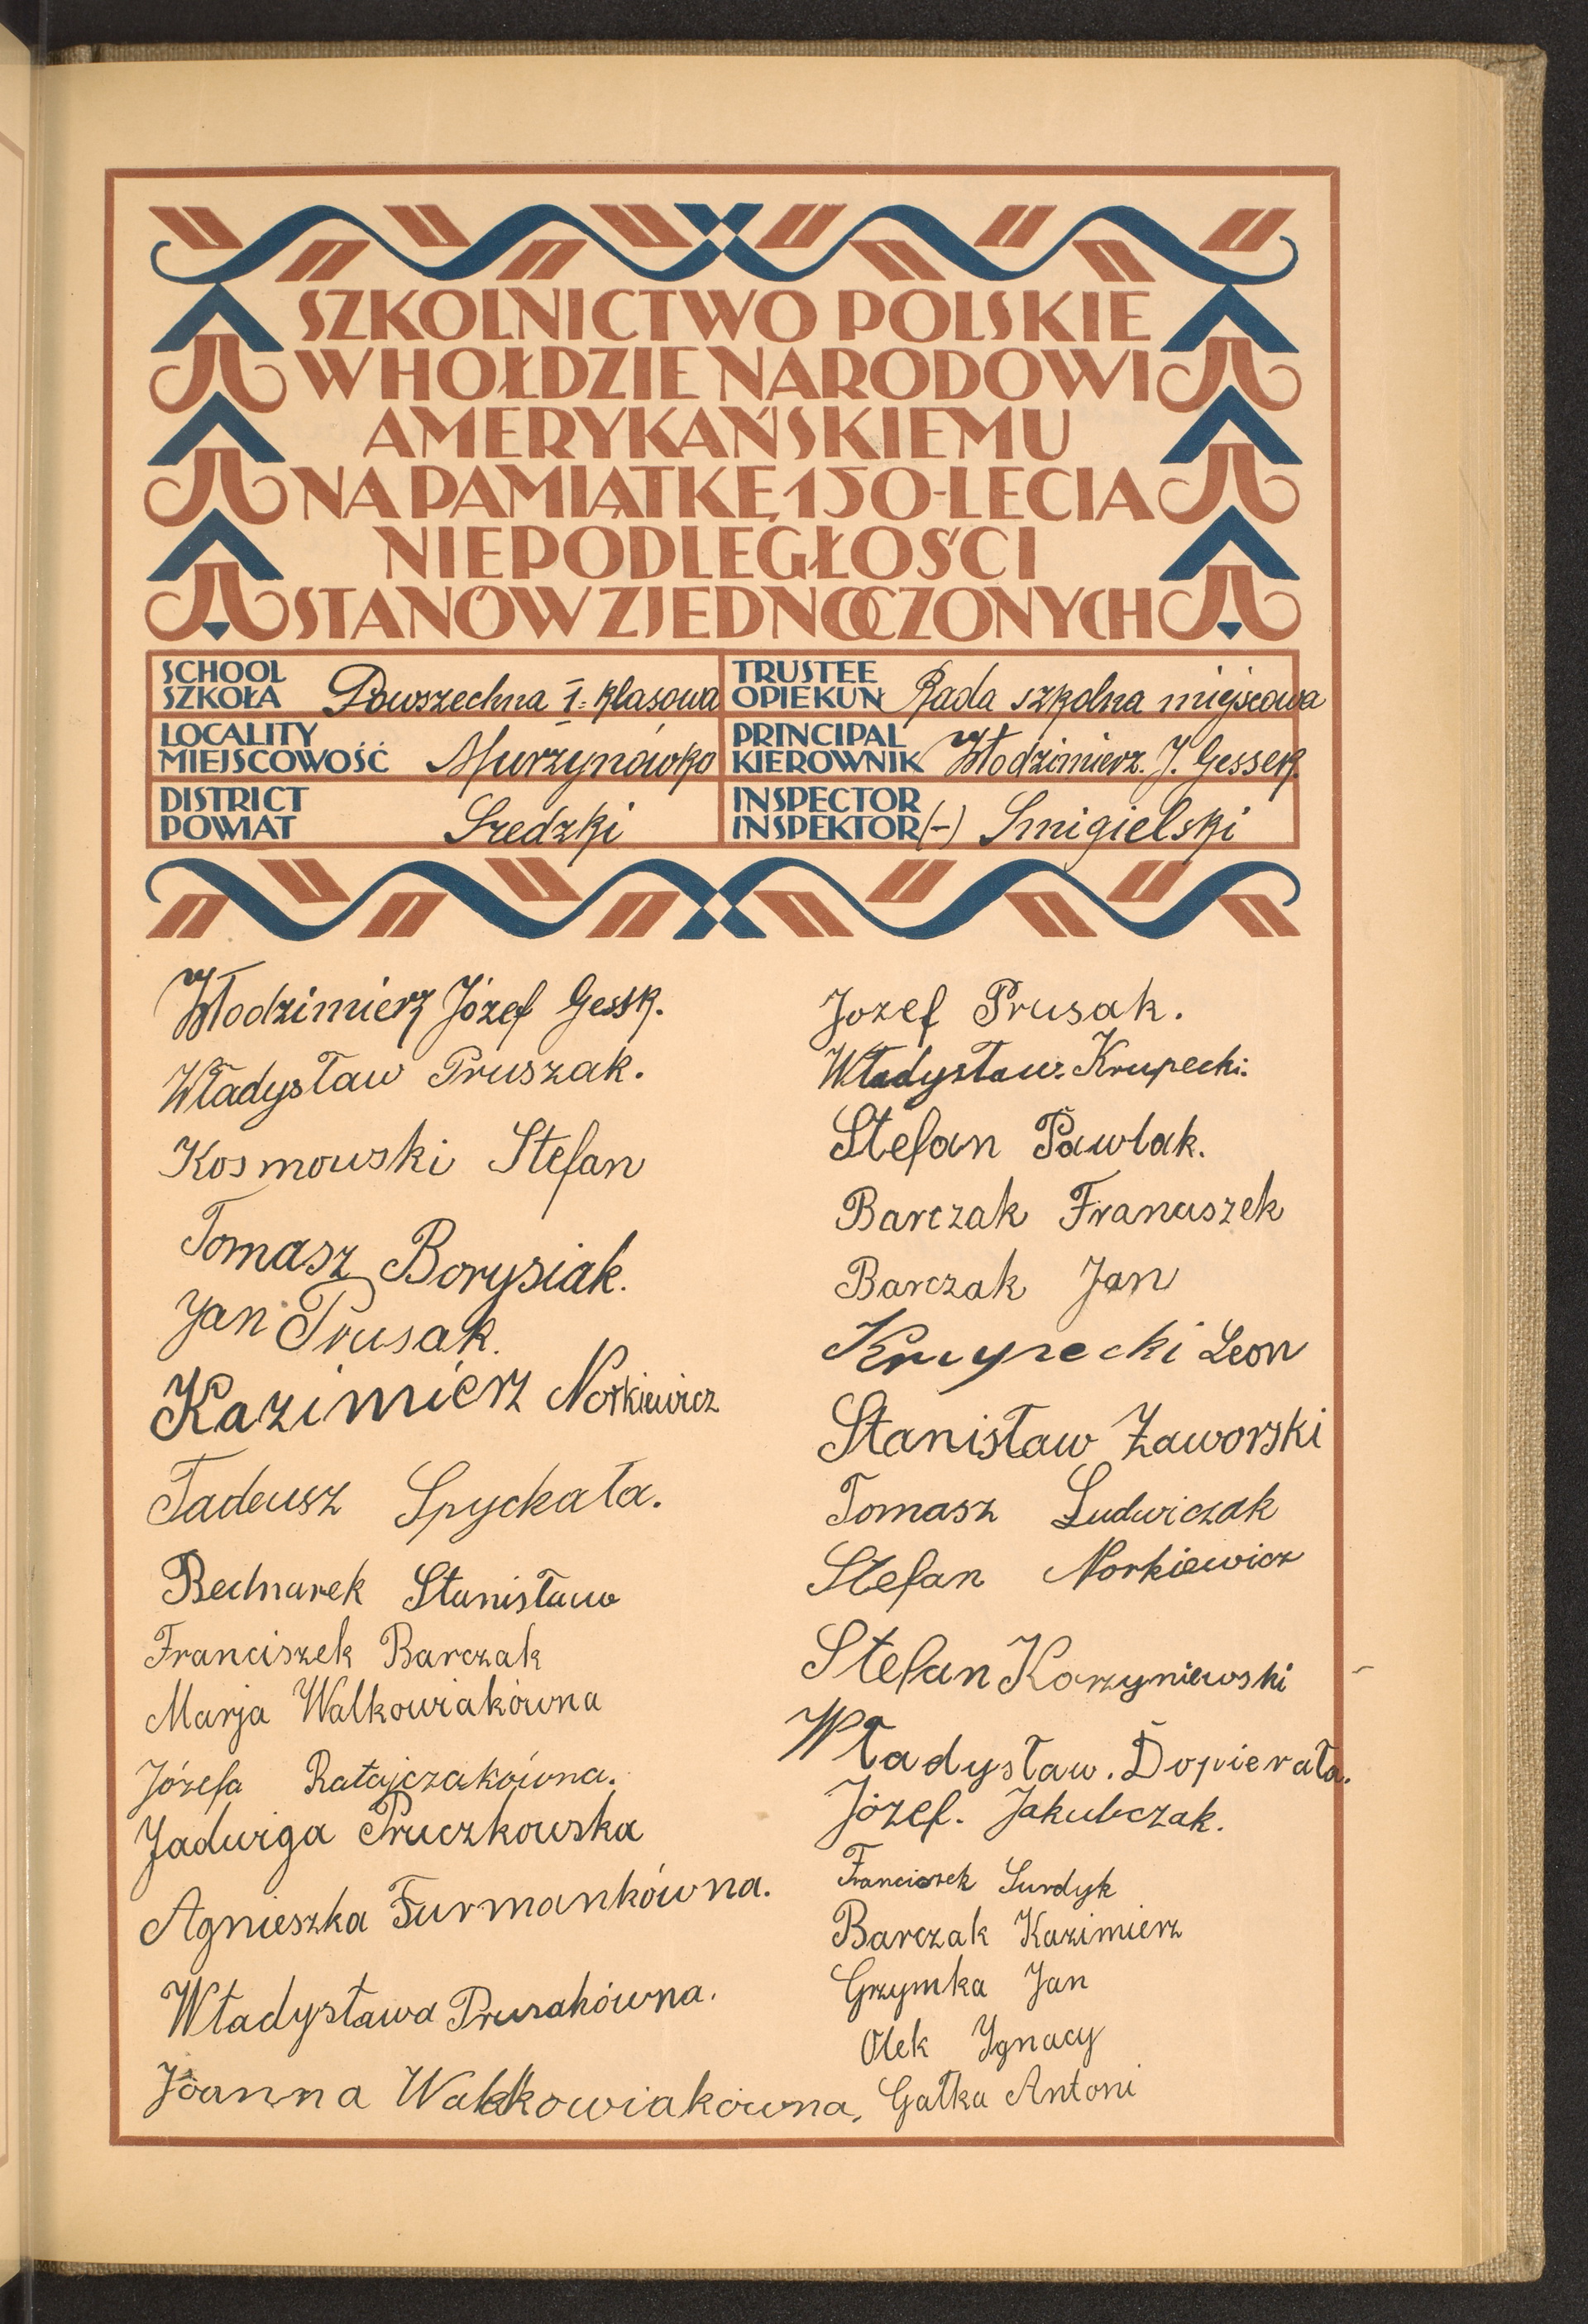 SZKOLNICTWO POLSKIE
W HOŁDZIE NARODOWI
AMERYKAŃSKIEMU
NA PAMIĄTKĘ 150-LECIA
NIEPODLEGŁOŚCI
STANÓW ZJEDNOCZONYCH
SCHOOL
SZKOŁA Powszechna 1. klasowa
TRUSTEE
OPIEKUN Rada szkolna miejscowa
LOCALITY
MIEJSCOWOŚĆ Murzynówko
PRINCIPAL
KIEROWNIK Włodzimierz. J. Gessek.
DISTRICT
POWIAT Średzki
INSPECTOR
INSPEKTOR (-) Smigielski
Włodzimierz Józef Gessk.
Władysław Pruszak.
Kosmowski Stefan
Tomasz Borysiak.
Jan Prusak.
Kazimierz Norkiewicz
Tadeusz Spyckała.
Bednarek Stanisław
Franciszek Barczak
Marja Walkowiakówna
Józefa Ratajczakówna.
Jadwiga Pruczkowska
Agnieszka Furmankówna.
Władysława Prusakówna.
Joanna Walkowiakówna,
Jozef Prusak.
Władysław. Krupecki.
Stefan Pawlak.
Barczak Franciszek
Barczak Jan
Krupecki Leon
Stanisław Zaworski
Tomasz Ludwiczak
Stefan Norkiewicz
Stefan Korzyniewski
Władysław. Dopierała.
Józef. Jakubczak.
Franciszek Surdyk
Barczak Kazimierz
Grzymka Jan
Olek Ygnacy
Gałka Antoni